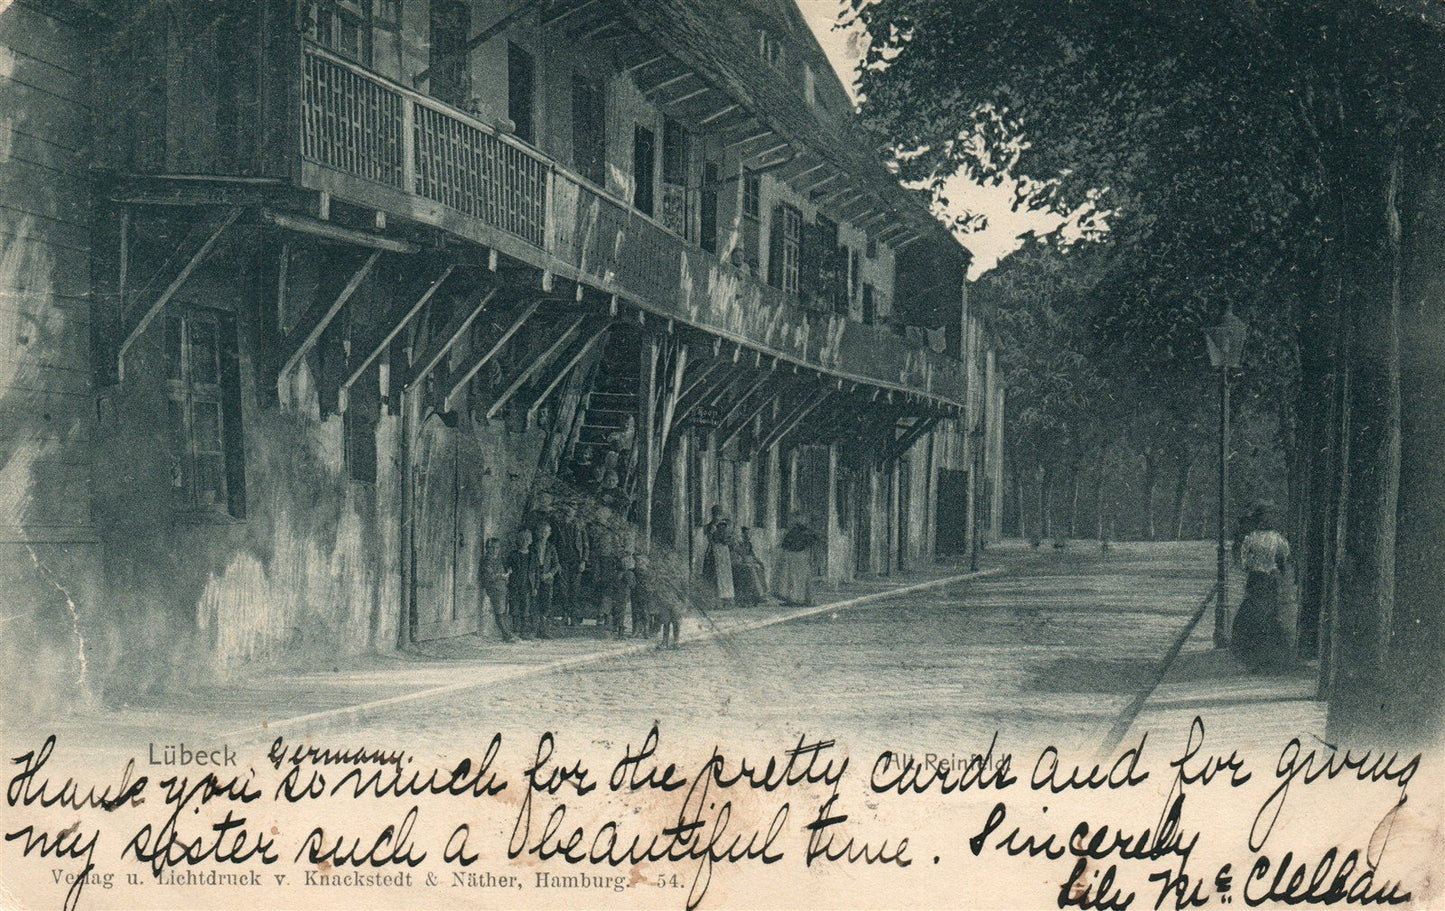 Lübeck Germany. Alt Reinfeld
Thank you so much for the pretty cards and for giving
my sister such a beautiful time. Sincerely
Verlag u. Lichtdruck v. Knackstedt & Näther, Hamburg. 54.
Lily Mc Clellan